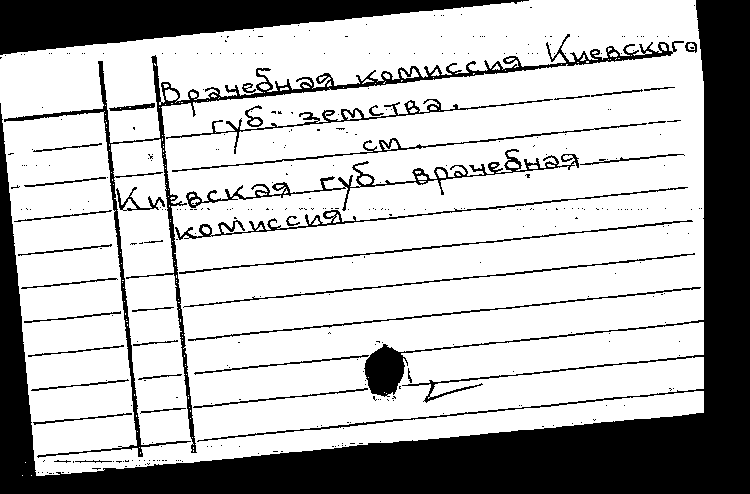 Врачебная комиссия Киевского
губ. земства.
см.
Киевская губ. врачебная
комиссия.